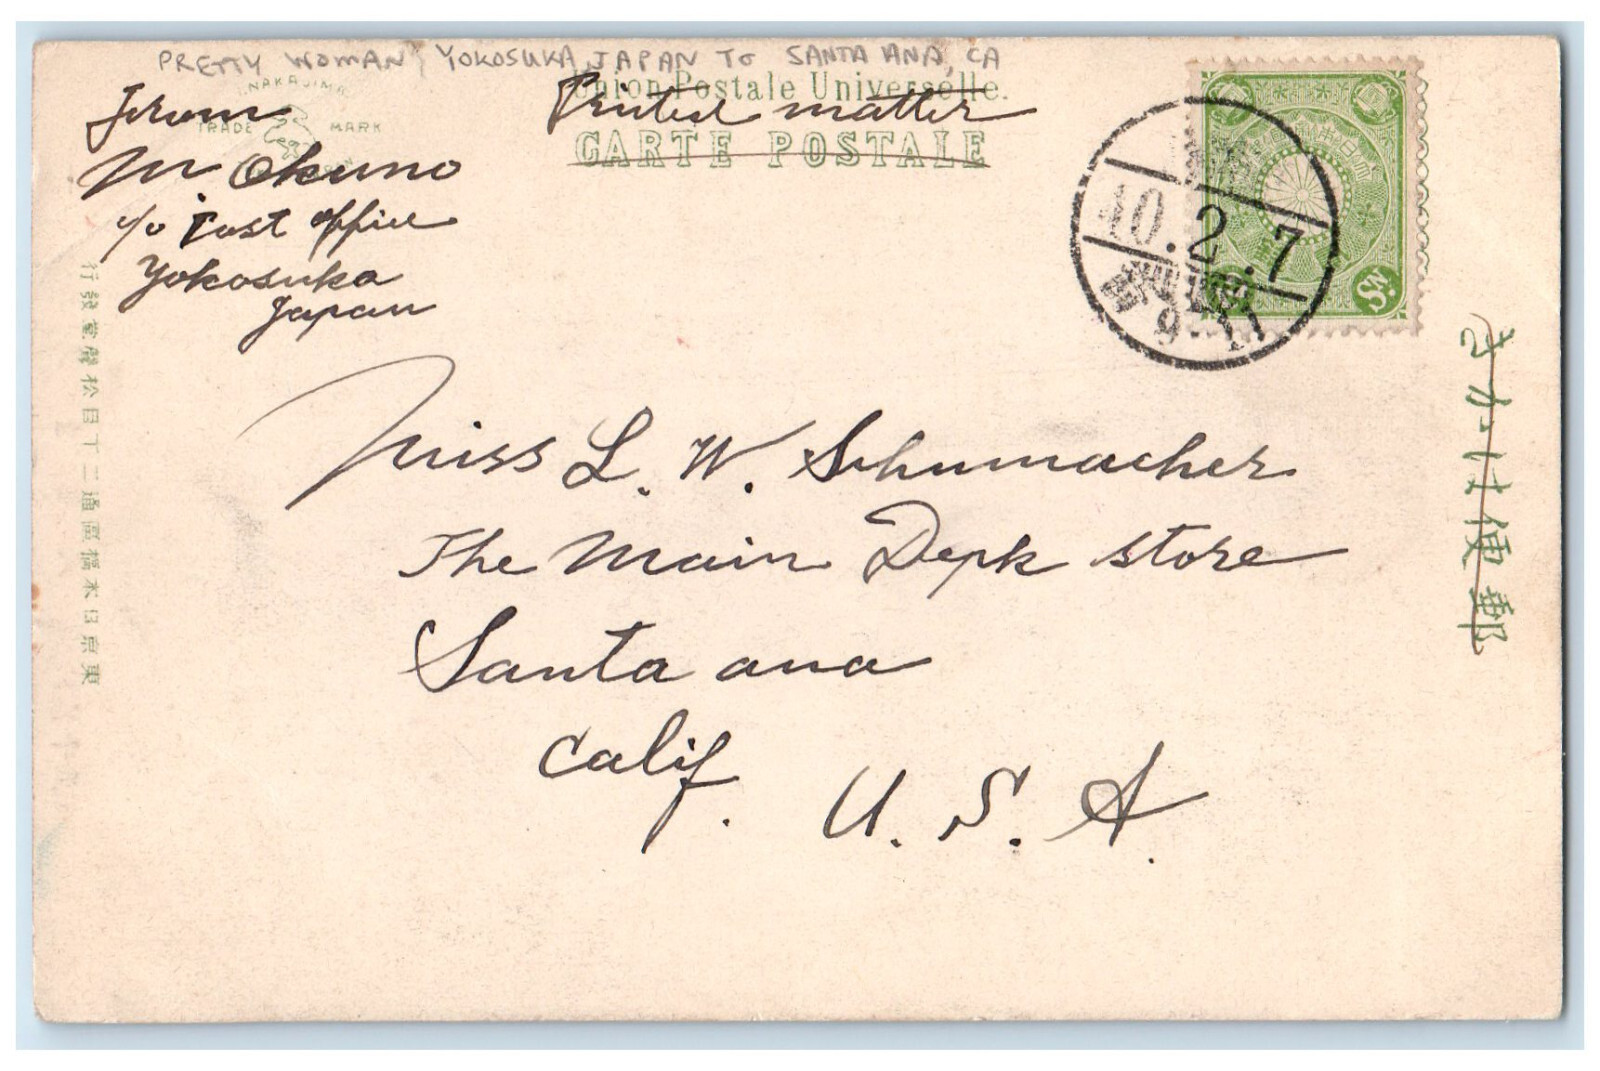 PRETTY WOMAN, YOKOSUKA, JAPAN TO SANTA ANA, CA
NAKAJIMA
TRADE MARK
Union Postale Universelle.
CARTE POSTALE
Printed matter
From
M. Okuno
c/o Post office
Yokosuka
Japan
10.2.7
9-17
Sn.
Miss L. W. Schumacher
The Main Dept store
Santa ana
Calif.
U. S. A.
きかは便郵
行發堂聲松目丁二通區橋本日京東